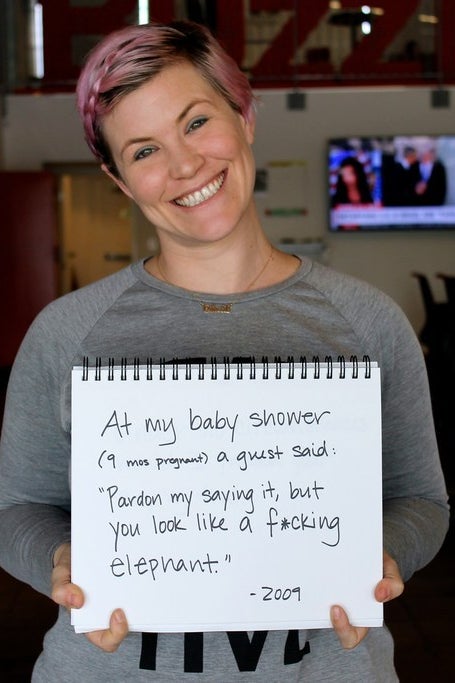 At my baby shower
(9 mos pregnant) a guest said:
"Pardon my saying it, but
you look like a f*cking
elephant."
- 2009